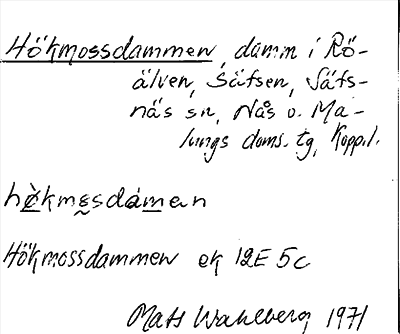 Hökmossdammen, damm i Rö-
älven, Säfsen, Säfs-
näs sn, Nås o. Ma-
lungs doms. tg, Kopp.l.
hökmosdamen
Hökmossdammen ek 12E 5c
Mats Wahlberg 1971